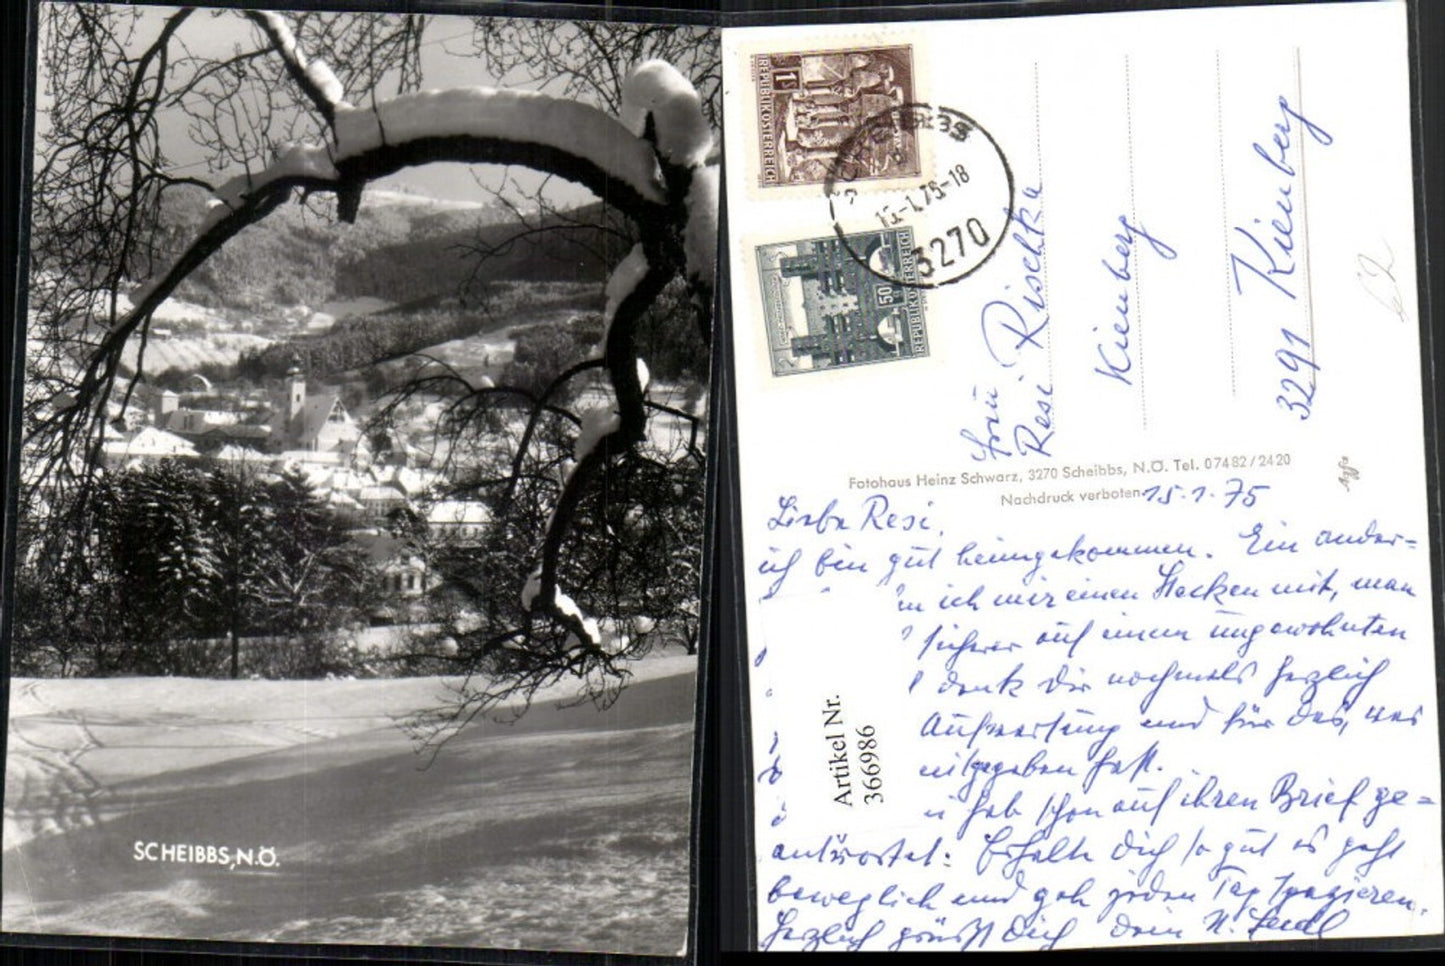 SCHEIBBS, N.Ö.
REPUBLIK ÖSTERREICH
1 S
REPUBLIK ÖSTERREICH
50
15.-1.75-18
3270
Frau
Resi Rischka
Kienberg
3291 Kienberg
Fotohaus Heinz Schwarz, 3270 Scheibbs, N.Ö. Tel. 07482/2420
Nachdruck verboten
15.1.75
Liebe Resi,
ich bin gut heimgekommen. Ein ander=
ich mir einen Stecken mit, man
sicherer auf einem ungewohnten
dank Dir nochmals herzlich
Aufwartung und für das, was
mitgegeben hast.
hab schon auf ihren Brief ge=
antwortet: Erhalte Dich so gut es geht
beweglich und geh jeden Tag spazieren.
Herzlich grüßt Dich Dein
Artikel Nr.
366986